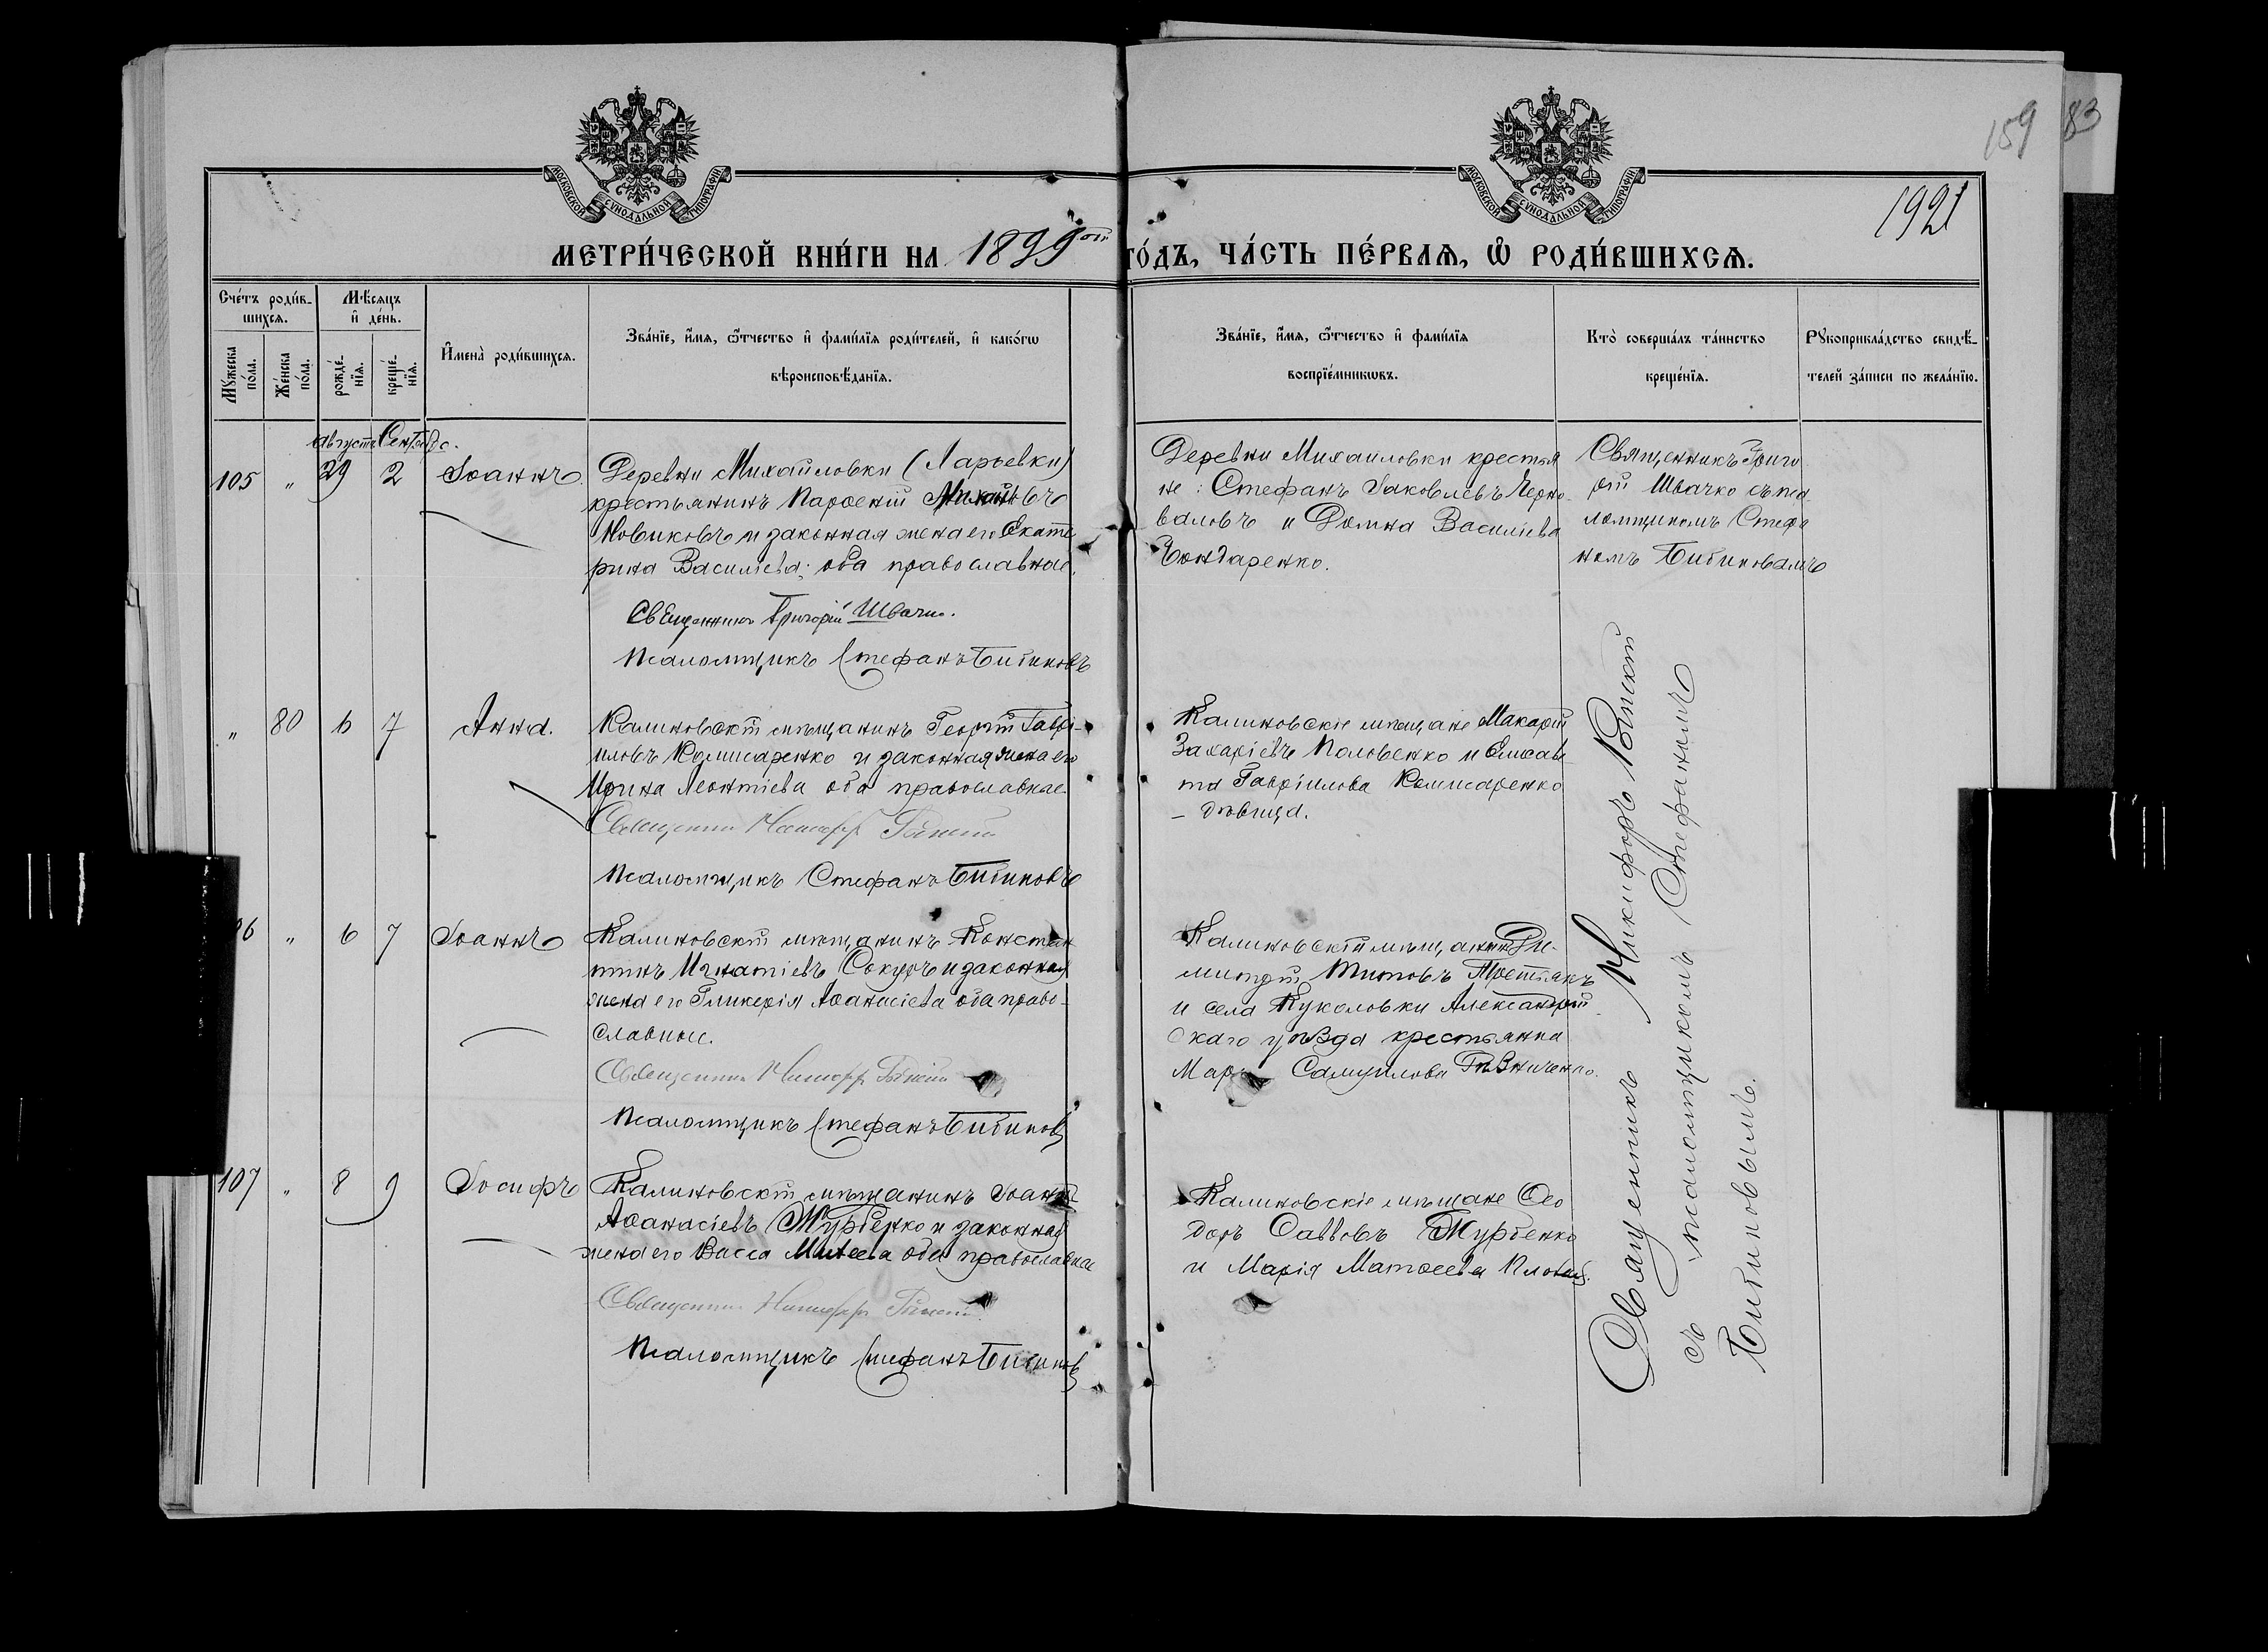 159 83
1921
МОСКОВСКОЙ СѴНОДАЛЬНОЙ ТИПОГРАФІИ
МОСКОВСКОЙ СѴНОДАЛЬНОЙ ТИПОГРАФІИ
МЕТРИ́ЧЕСКОЙ КНИ́ГИ НА 1899ый ГО́ДЪ, ЧА́СТЬ ПЕ́РВАѦ, Ѡ҆ РОДИ́ВШИХСѦ.
Сче́тъ роди́в-
шихсѧ.
Мѣ́сѧцъ
и҆ де́нь.
Мꙋ́жеска по́ла.
Же́нска по́ла.
рожде́-нїѧ.
креще́-нїѧ.
И҆мена̀ роди́вшихсѧ.
Зва́нїе, и҆́мѧ, ѻ҆́тчество и҆ фами́лїѧ роди́телей, и҆ како́гѡ
вѣроисповѣ́данїѧ.
Зва́нїе, и҆́мѧ, ѻ҆́тчество и҆ фами́лїѧ
воспрїе́мникѡвъ.
Кто̀ соверша́лъ та́инство
креще́нїѧ.
Рꙋкоприкла́дство свидѣ́-
телей за́писи по жела́нїю.
Августъ Сентябрь.
105 " 29 2 Іоаннъ.
Деревни Михайловки (Ларьевки)
крестьянинъ Парѳеній
Новиковъ и законная жена его Екате
рина Василіева; оба православные.
Священникъ Григорій Швачко.
Псаломщикъ Стефанъ Бибиковъ
Деревни Михайловки крестья
не: Стефанъ Іаковлевъ Черно-
валовъ и Домна Василіева
Бондаренко.
Священникъ Григо
рій Швачко съ пса
ломщикомъ Стефа
номъ Бибиковымъ
" 80 6 7 Анна.
Калиновскій мѣщанинъ Георгій Гаврі-
иловъ Комисаренко и законная жена его
Ирина Леонтіева оба православные
Священникъ Никифоръ
Псаломщикъ Стефанъ Бибиковъ
Калиновскіе мѣщане Макарій
Захаріевъ Половенко и Елисаве
та Гавріилова Комисаренко
– дѣвица.
06 " 6 7 Іоаннъ
Калиновскій мѣщанинъ Констан
тинъ Игнатіевъ Сокуръ и законная
жена его Гликерія Аѳанасіева оба право-
славные.
Священникъ Никифоръ
Псаломщикъ Стефанъ Бибиковъ
Калиновскій мѣщанинъ Ди-
митрій Титовъ Третьякъ
и села Куколовки Александрій
скаго уѣзда крестьянка
Самуилова Рѣзниченко.
107 " 8 9 Іосифъ
Калиновскій мѣщанинъ Іоаннъ
Аѳанасіевъ Журбенко и законная
жена его Васса оба православные
Священникъ Никифоръ
Псаломщикъ Стефанъ Бибиковъ
Калиновскіе мѣщане Ѳео
доръ Саввовъ Журбенко
и Марія Матѳеева
Священникъ Никифоръ
съ псаломщикомъ Стефаномъ
Бибиковымъ.